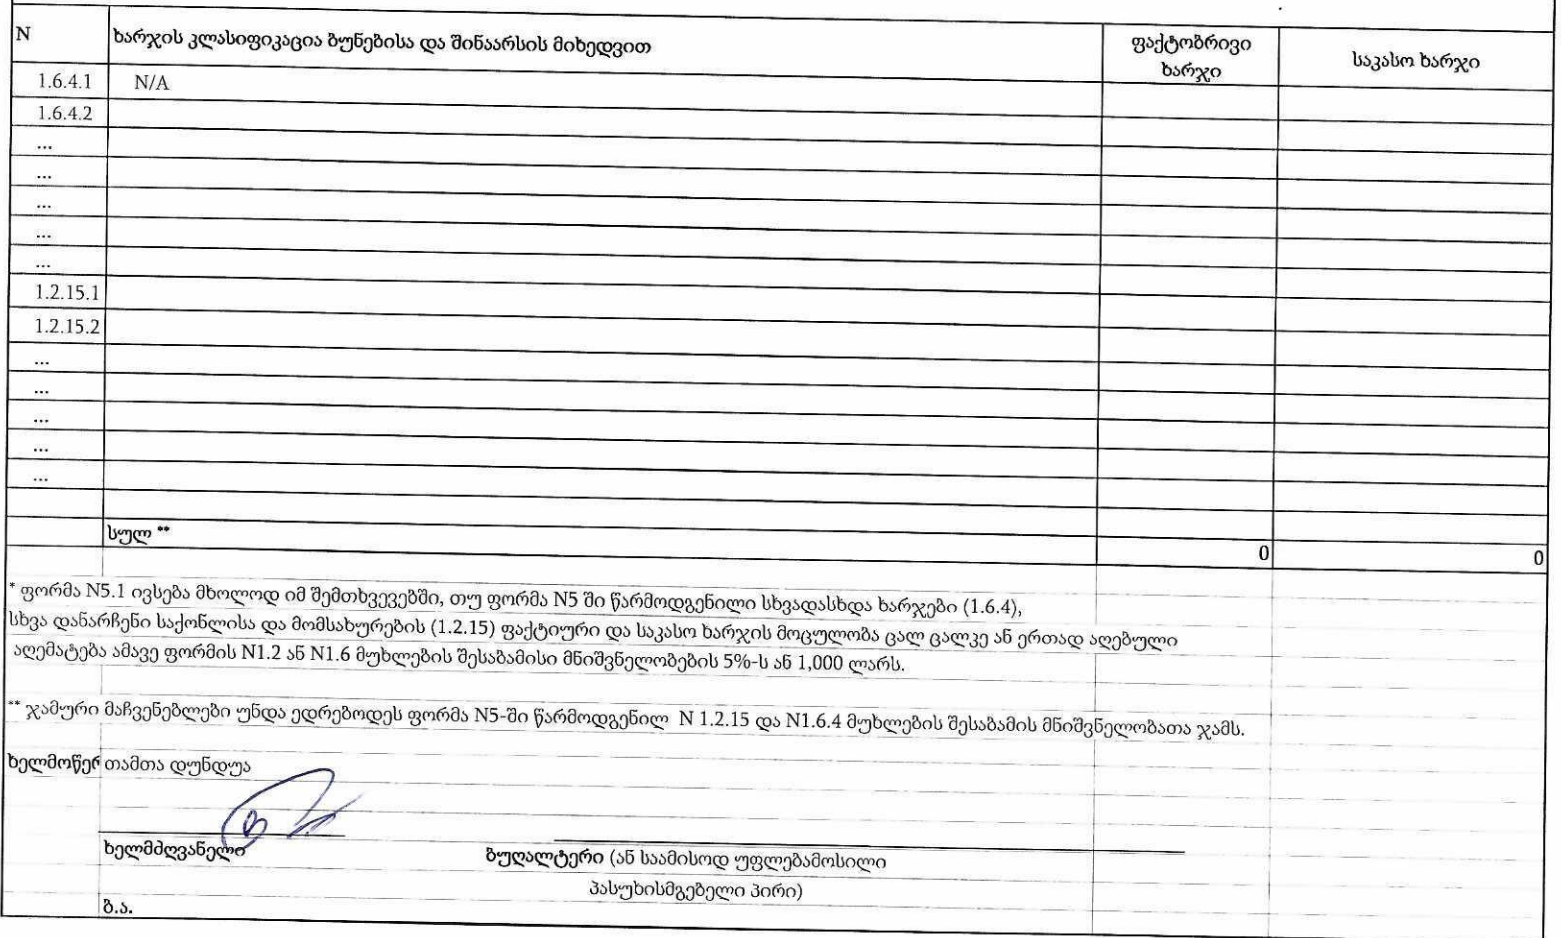 N ხარჯის კლასიფიკაცია ბუნებისა და შინაარსის მიხედვით ფაქტობრივი ხარჯი საკასო ხარჯი
1.6.4.1 N/A
1.6.4.2
...
...
...
...
...
1.2.15.1
1.2.15.2
...
...
...
...
...
სულ ** 0 0
* ფორმა N5.1 ივსება მხოლოდ იმ შემთხვევებში, თუ ფორმა N5 ში წარმოდგენილი სხვადასხდა ხარჯები (1.6.4),
სხვა დანარჩენი საქონლისა და მომსახურების (1.2.15) ფაქტიური და საკასო ხარჯის მოცულობა ცალ ცალკე ან ერთად აღებული
აღემატება ამავე ფორმის N1.2 ან N1.6 მუხლების შესაბამისი მნიშვნელობების 5%-ს ან 1,000 ლარს.
** ჯამური მაჩვენებლები უნდა ედრებოდეს ფორმა N5-ში წარმოდგენილ N 1.2.15 და N1.6.4 მუხლების შესაბამის მნიშვნელობათა ჯამს.
ხელმოწერ თამთა დუნდუა
ხელმძღვანელი ბუღალტერი (ან საამისოდ უფლებამოსილი
პასუხისმგებელი პირი)
ბ.ა.